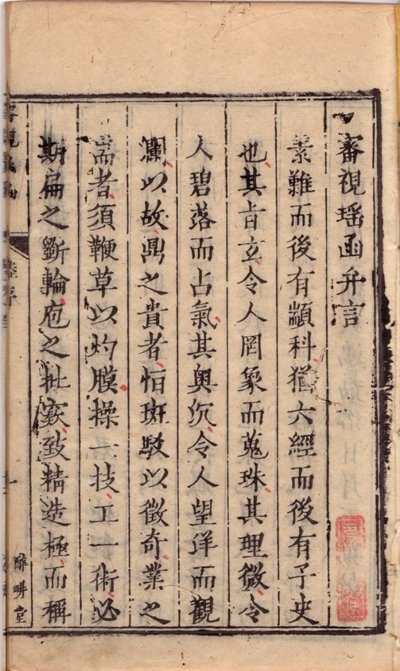 審視瑶函弁言
素難而後有顓科猶六經而後有子史
也其旨玄令人罔象而蒐珠其理微令
人碧落而占氣其奥沉令人望洋而觀
瀾以故鼎之貴者怕斑駁以徵奇業之
耑者須鞭草以灼膜操一技工一術必
期扁之斵輪庖之批窾致精造極而稱
醉畊堂